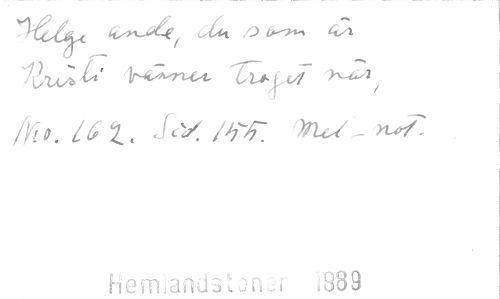 Helge ande, du som är
Kristi vänner troget när,
No. 162. Sid. 155. Mel-not.
Hemlandstoner 1889